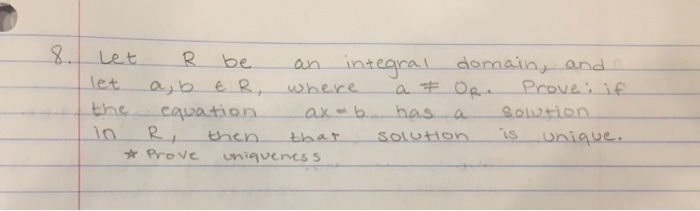 8. Let R be an integral domain, and
let a, b ∈ R, where a ≠ 0R. Prove: if
the equation ax = b has a solution
in R, then that solution is unique.
* Prove uniqueness